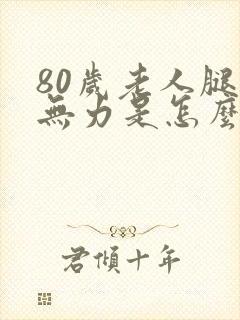 80歲老人腿
無力是怎麼
君傾十年